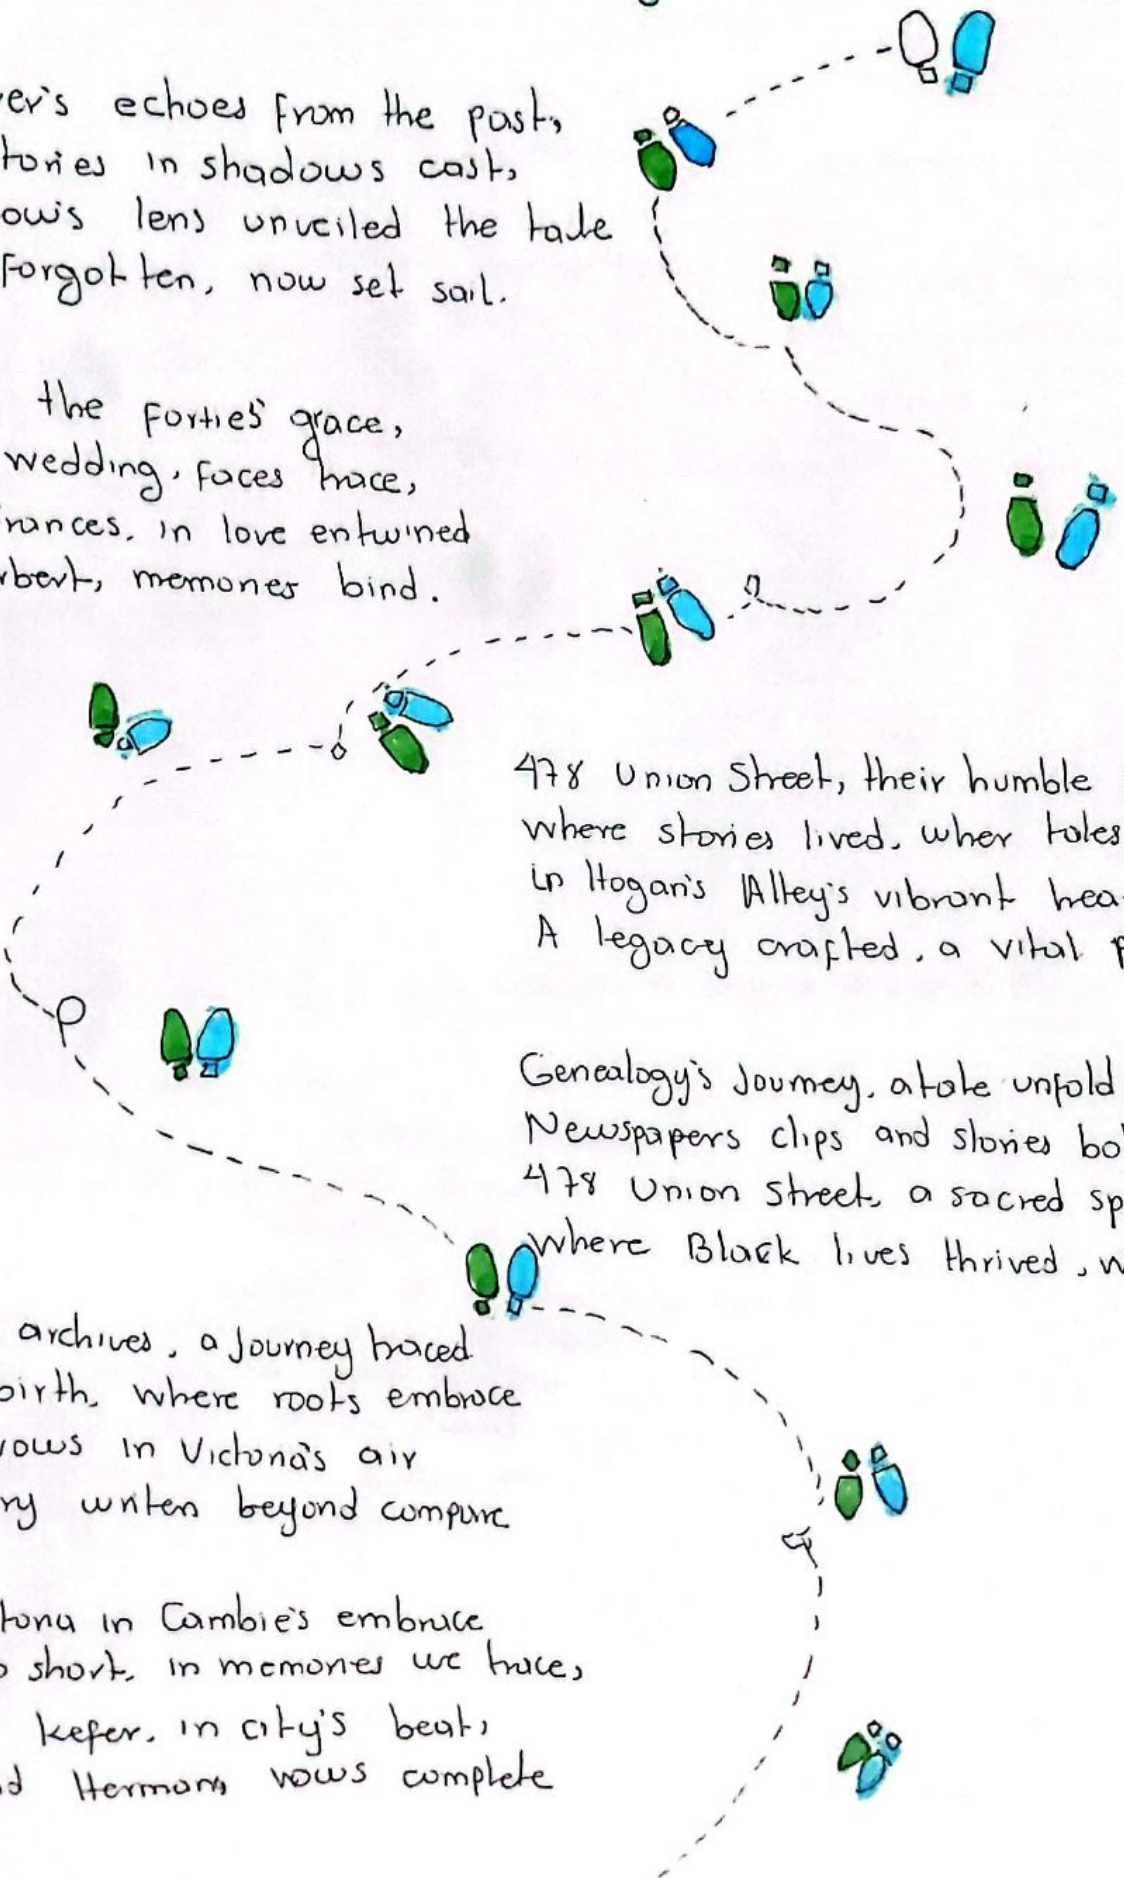 er's echoes from the past,
tories in shadows cast,
ow's lens unveiled the tale
forgotten, now set sail.
the forties' grace,
wedding, faces trace,
rances, in love entwined
rbert, memories bind.
478 Union Street, their humble
where stories lived, wher tales
in Hogan's Alley's vibrant hea
A legacy crafted, a vital p
Genealogy's Journey, a tale unfold
Newspapers clips and stories bol
478 Union Street, a sacred sp
where Black lives thrived, w
archives, a Journey traced
birth, where roots embrace
vows in Victoria's air
ry writen beyond compare
toria in Cambie's embrace
o short, in memories we trace,
kefer, in city's beat,
d Hermans vows complete